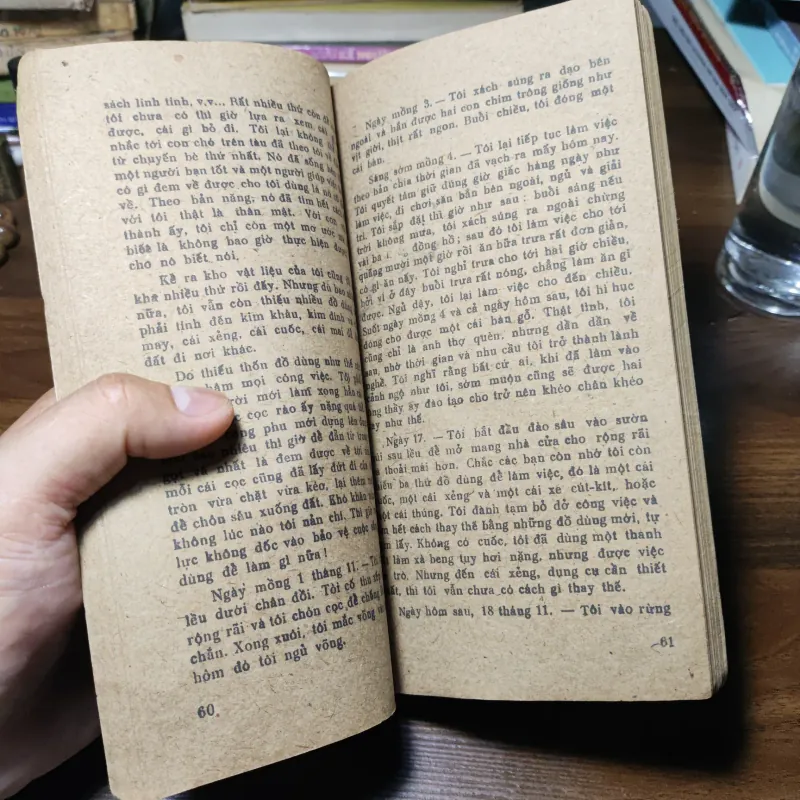 sách linh tinh, v.v... Rất nhiều thứ còn để
tôi chưa có thì giờ lựa ra xem cái
được, cái gì bỏ đi. Tôi lại không
nhắc tới con chó trên tàu đã theo tôi về
từ chuyến bè thứ nhất. Nó đã sống bên
một người bạn tốt và một người giúp việc
có gì đem về được cho tôi dùng là nó
về. Theo bản năng; nó đã tìm hết cách
với tôi thật là thân mật. Với con
thành ấy, tôi chỉ còn một mơ ước mà
biết là không bao giờ thực hiện được
cho nó biết nói,
Kể ra kho vật liệu của tôi cũng
khá nhiều thứ rồi đấy. Nhưng dù bao
nữa, tôi vẫn còn thiếu nhiều đồ dùng
phải tính đến kim khâu, kim đinh
may, cái xẻng, cái cuốc, cái mai để
đất đi nơi khác.
Do thiếu thốn đồ dùng như thế
chậm mọi công việc. Tôi
người mới làm xong hẳn
cọc rào ấy nặng quá
phu mới dựng lên
nhiều thì giờ để đẵn từ trong
gợi, là nhất là đem được về tới
mỗi cái cọc cũng đã lấy đứt đi của
tròn vừa chặt vừa kéo, lại thêm
để chôn sâu xuống đất. Khó khăn
không lúc nào tôi nản chí. Thì giờ
lực không dốc vào bảo vệ cuộc
dùng để làm gì nữa !
Ngày mồng 1 tháng 11. — Tôi
lều dưới chân đồi. Tôi cố thu xếp
rộng rãi và tôi chôn cọc để chống
chắn. Xong xuôi, tôi mắc võng vào
hôm đó tôi ngủ võng.
60
Ngày mồng 3. — Tôi xách súng ra dạo bên
ngoài và bắn được hai con chim trông giống như
vịt giời, thịt rất ngon. Buổi chiều, tôi đóng một
cái bàn.
Sáng sớm mồng 4. — Tôi lại tiếp tục làm việc
theo bản chia thời gian đã vạch ra mấy hôm nay.
Tôi quyết tâm giữ đúng giờ giấc hàng ngày như
làm việc, đi chơi săn bắn bên ngoài, ngủ và giải
trí. Tôi sắp đặt thì giờ như sau : buổi sáng nếu
trời không mưa, tôi xách súng ra ngoài chừng
vài ba đồng hồ ; sau đó tôi làm việc cho tới
quãng mười một giờ rồi ăn bữa trưa rất đơn giản,
có gì ăn nấy. Tôi nghỉ trưa cho tới hai giờ chiều,
bởi vì ở đây buổi trưa rất nóng, chẳng làm ăn gì
được. Ngủ dậy, tôi lại làm việc cho đến chiều.
Suốt ngày mồng 4 và cả ngày hôm sau, tôi hì hục
đóng cho được một cái bàn gỗ. Thật tình, tôi
cũng chỉ là anh thợ quèn, nhưng dần dần về
sau, nhờ thời gian và nhu cầu tôi trở thành lành
nghề. Tôi nghĩ rằng bất cứ ai, khi đã lâm vào
cảnh ngộ như tôi, sớm muộn cũng sẽ được hai
ông thầy ấy đào tạo cho trở nên khéo chân khéo
tay như thế.
Ngày 17. — Tôi bắt đầu đào sâu vào sườn
núi sau lều để mở mang nhà cửa cho rộng rãi
thoải mái hơn. Chắc các bạn còn nhớ tôi còn
thiếu ba thứ đồ dùng để làm việc, đó là một cái
cuốc, một cái xẻng và một cái xe cút-kít, hoặc
một cái thúng. Tôi đành tạm bỏ dở công việc và
tìm hết cách thay thế bằng những đồ dùng mới, tự
làm lấy. Không có cuốc, tôi đã dùng một thanh
làm xà beng tuy hơi nặng, nhưng được việc
trò. Nhưng đến cái xẻng, dụng cụ cần thiết
nhất, thì tôi vẫn chưa có cách gì thay thế.
Ngày hôm sau, 18 tháng 11. — Tôi vào rừng
61